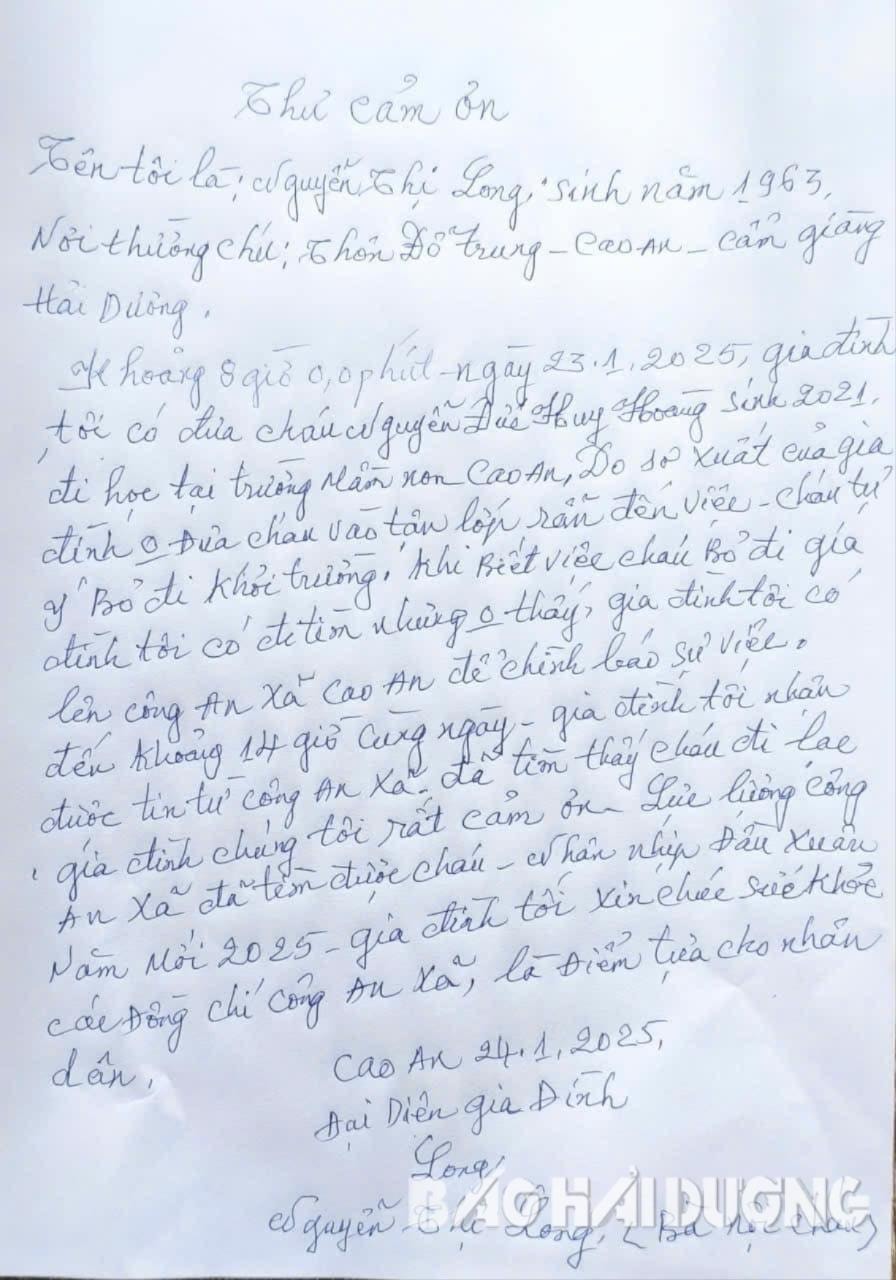 Thư cảm ơn
Tên tôi là; Nguyễn Thị Long, sinh năm 1963,
Nơi thường chú; Thôn Đỗ Trung - Cao An - Cẩm giàng
Hải Dương.
Khoảng 8 giờ 0,0 phút - ngày 23.1.2025, gia đình
tôi có đưa cháu Nguyễn Đức Huy Hoàng sinh 2021,
đi học tại trường Mầm non Cao An, Do sơ xuất của gia
đình o Đưa cháu vào tận lớp rẫn đến việc - cháu tự
ý Bỏ đi khỏi trường, khi Biết việc cháu Bỏ đi gia
đình tôi có đi tìm nhưng o thấy, gia đình tôi có
lên công An xã Cao An để chình báo sự việc.
đến khoảng 14 giờ cùng ngày - gia đình tôi nhận
được tin từ công An xã - đã tìm thấy cháu đi lạc
gia đình chúng tôi rất cảm ơn - Lực lượng công
An xã đã tìm được cháu - Nhân nhịp Đầu xuân
Năm mới 2025 - gia đình tôi xin chúc sức khỏe
các Đồng chí công An xã, là Điểm tựa cho nhân
dân,
Cao An 24.1.2025,
Đại Diện gia Đình
Long
Nguyễn Thị Long, (Bà nội cháu)
BÁO HẢI DƯƠNG